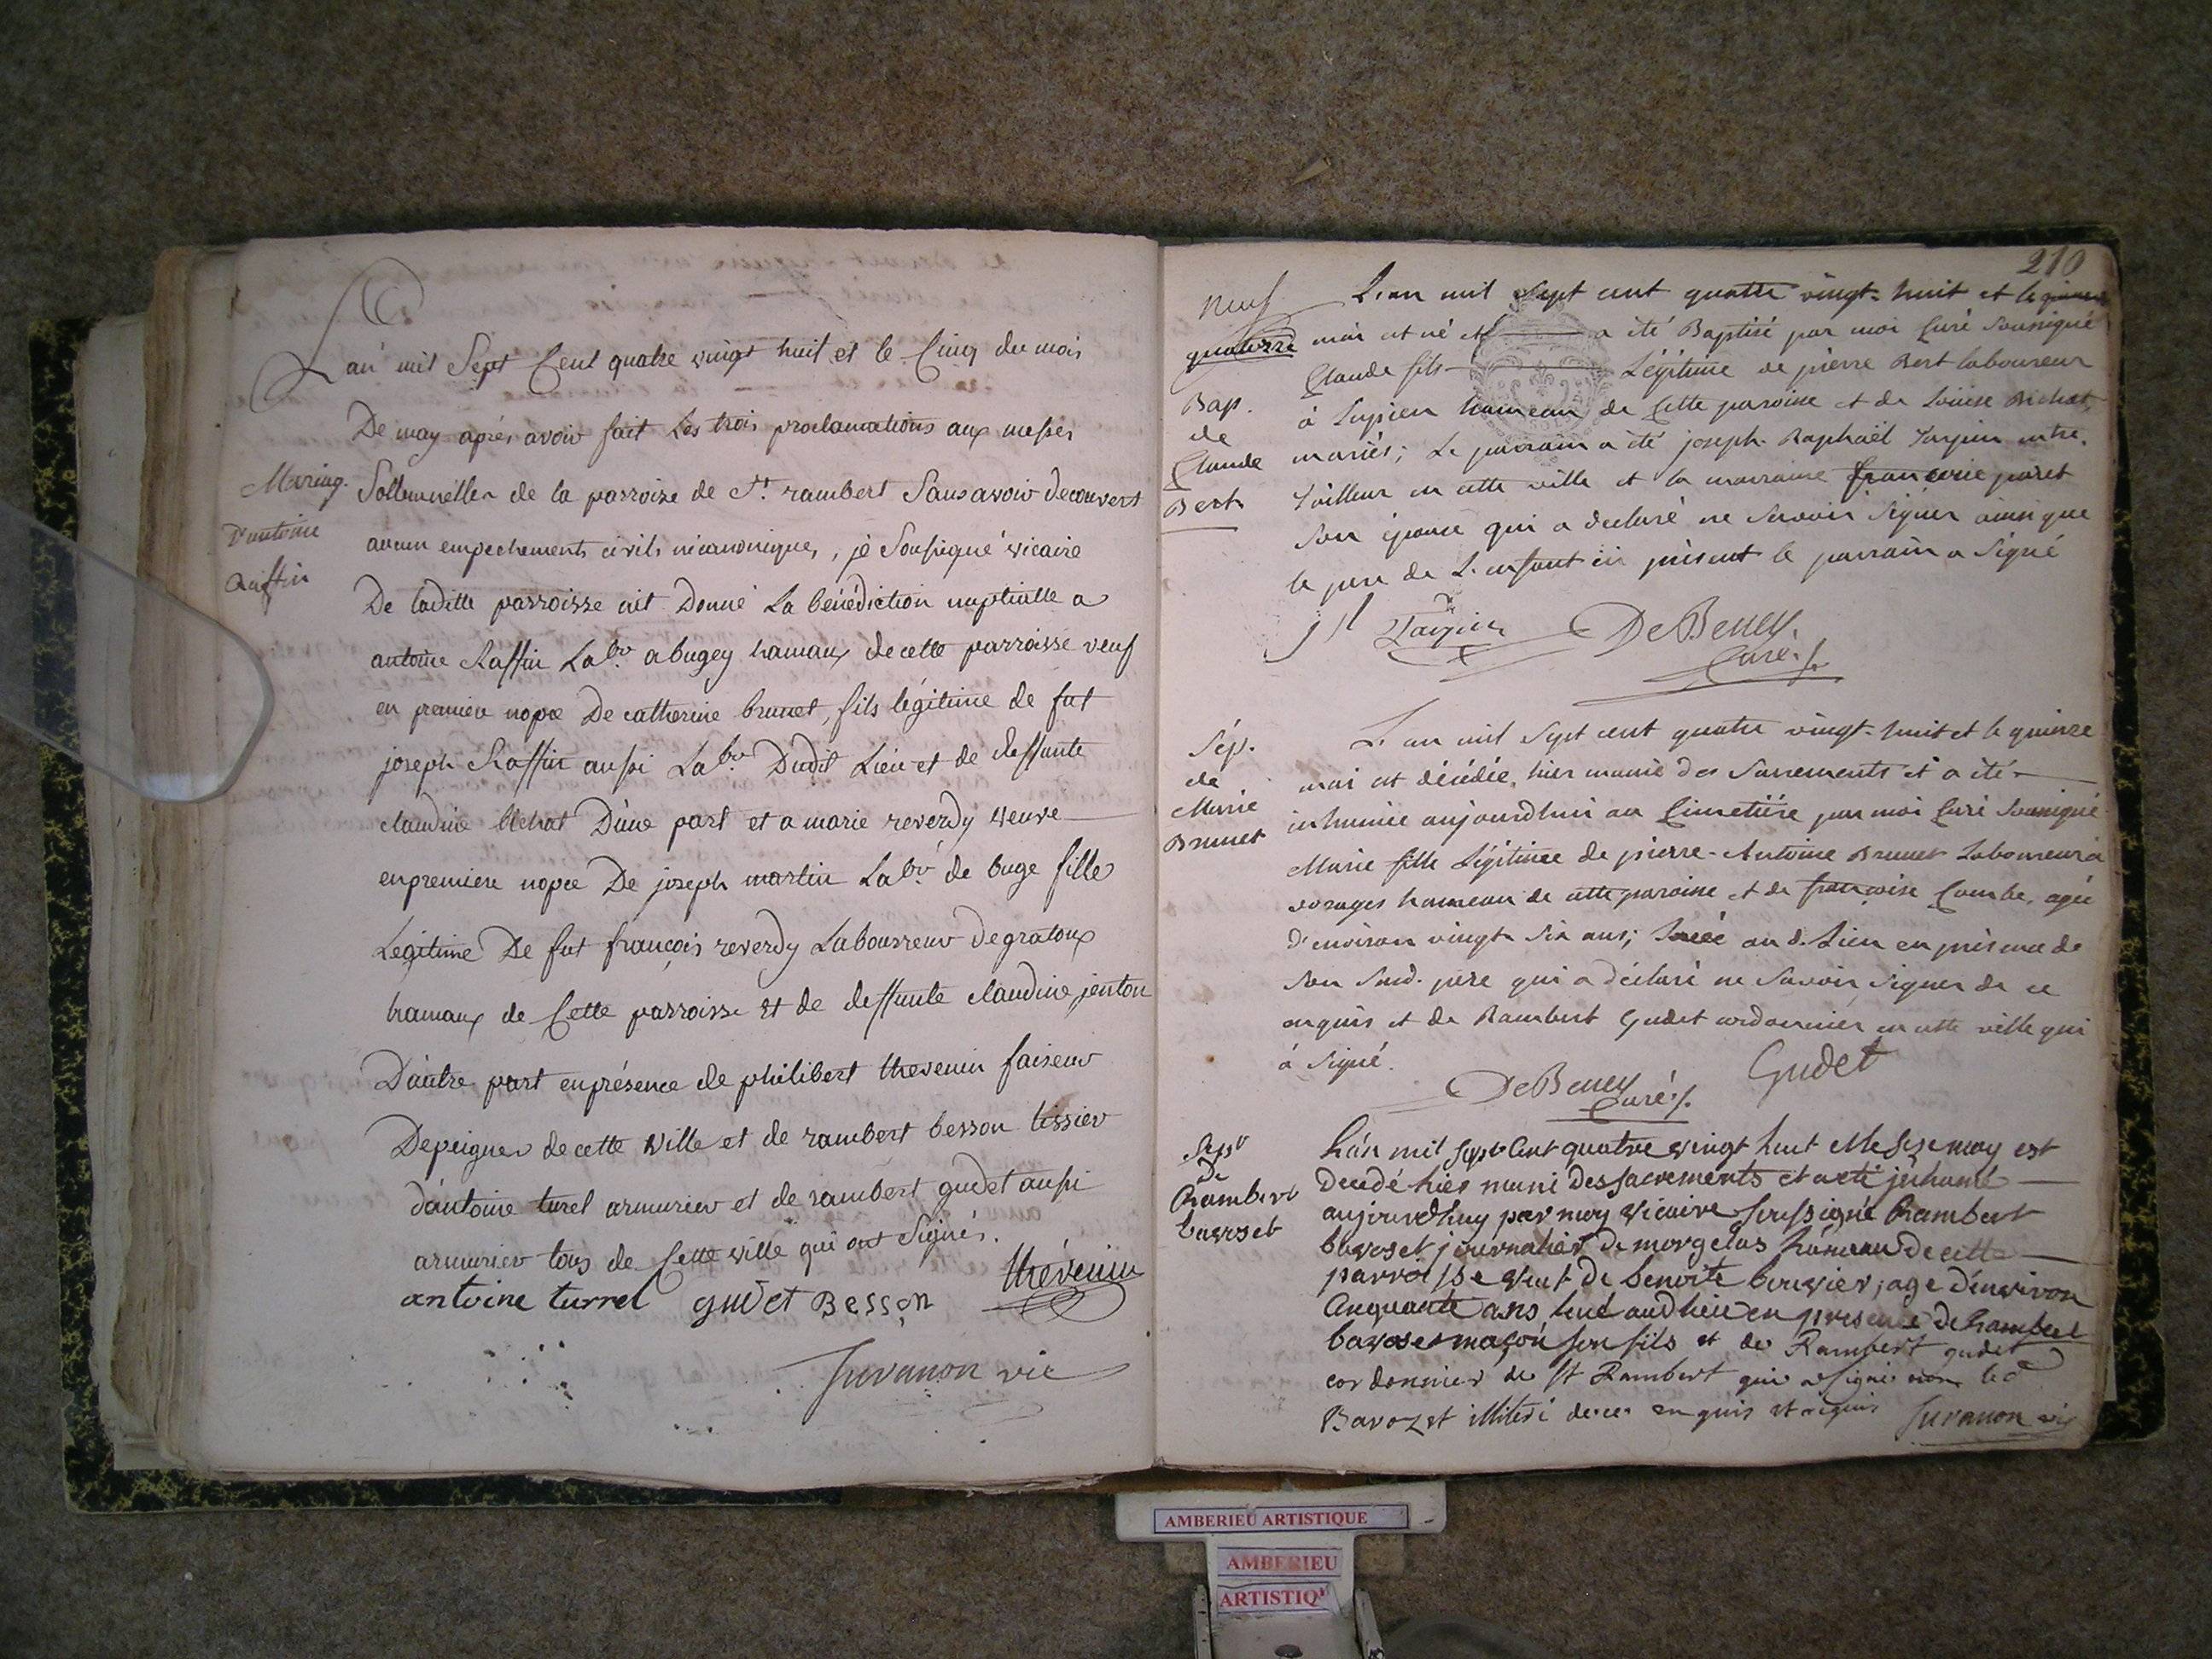 Mariag.
D'antoine
Raffin
L'an mil Sept Cent quatre vingt huit et le Cinq du mois
De may aprés avoir fait Les trois proclamations aux messes
Sollemnelles de la parroisse de St. rambert Sans avoir decouvert
aucun empechements civils ni canoniques, je Soussigné vicaire
De laditte parroisse ait Donné La bénédiction nuptialle a
antoine Raffin Labr. a bugey hamaux de cette parroisse veuf
en premiere nopce De catherine brunet, fils légitime de fut
joseph Raffin aussi Labr. Dudit Lieu et de deffunte
claudine Bichat D'une part et a marie reverdy veuve
en premiere nopce De joseph martin Labr. de buge fille
Légitime De fut françois reverdy Laboureur de gratoux
hamaux de Cette parroisse et de deffunte claudine jenton
D'autre part en présence de philibert thevenin faiseur
De peignes de cette ville et de rambert besson tissier
d'antoine turel armurier et de rambert gudet aussi
armurier tous de Cette ville qui ont Signés.
antoine turrel gudet Besson thévenin
Juvanon vic
210
neuf
quatorze
Bap.
de
Claude
Bert
L'an mil Sept cent quatre vingt-huit et le
mai est né et a été Baptisé par moi Curé Soussigné
Claude fils Légitime de pierre Bert laboureur
à Lupieu hameau de Cette paroisse et de Louise Bichat
mariés; Le parrain a été joseph-Raphaël Tarpin mtre.
Tailleur en cette ville et la marraine françoise paret
Son épouse qui a declaré ne Savoir Signer ainsi que
le pere de L'enfant ici présent le parrain a Signé
Tarpin De Beney
Curé
Sép.
de
Marie
Brunet
L'an mil Sept cent quatre vingt-huit et le quinze
mai est décédée hier munie des Sacrements et a été
inhumée aujourdhui au Cimetière par moi Curé Soussigné
Marie fille Légitime de pierre-Antoine Brunet Laboureur à
vorages hameau de cette paroisse et de françoise Combe, agée
d'environ vingt Six ans; Levée au d. Lieu en présence de
Son Susd. père qui a déclaré ne Savoir Signer de ce
enquis et de Rambert Gudet cordonnier en cette ville qui
à Signé.
De Beney Gudet
Curé
Sepr
De
Rambert
bavoset
L'an mil Sept Cent quatre vingt huit et le Seze may est
Decedé hier muni des Sacrements et a eté jnhumé
aujourd'huy par moy vicaire Soussigné Rambert
bavoset journalier de morgelas hameau de cette
parroisse veuf de benoite bouvier, agé d'environ
Cinquante ans levé aud lieu en presence de Rambert
bavoset maçon son fils et de Rambert gudet
cordonnier de St Rambert qui a Signé non led
Bavozet illiteré de ce enquis et requis Juvanon vic
AMBERIEU ARTISTIQUE
AMBERIEU
ARTISTIQ